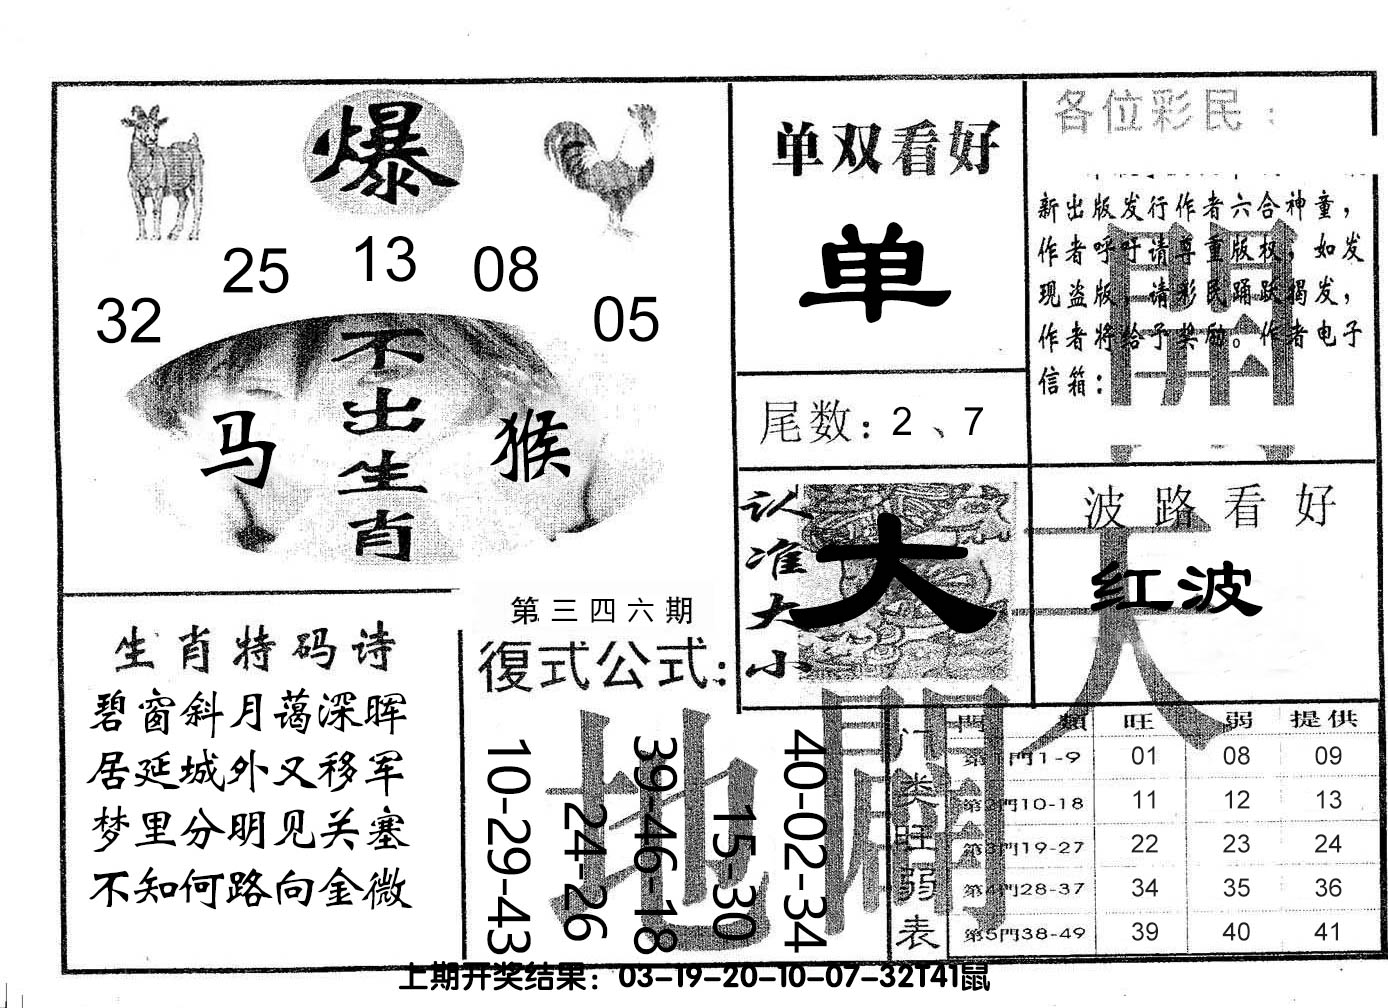 爆
25 13 08
32 05
不出生肖
马 猴
单双看好
单
尾数：2、7
认准大小
大
各位彩民：
新出版发行作者六合神童，
作者呼吁请尊重版权，如发
现盗版，请彩民踊跃揭发，
作者将给予奖励。作者电子
信箱：
波路看好
红波
天
地
開
開
生肖特码诗
碧窗斜月蔼深晖
居延城外又移军
梦里分明见关塞
不知何路向金微
第三四六期
復式公式：
10-29-43
24-26
39-46-18
15-30
40-02-34
门类旺弱表
門類 旺 弱 提供
第1門1-9 01 08 09
第2門10-18 11 12 13
第3門19-27 22 23 24
第4門28-37 34 35 36
第5門38-49 39 40 41
上期开奖结果：03-19-20-10-07-32T41鼠